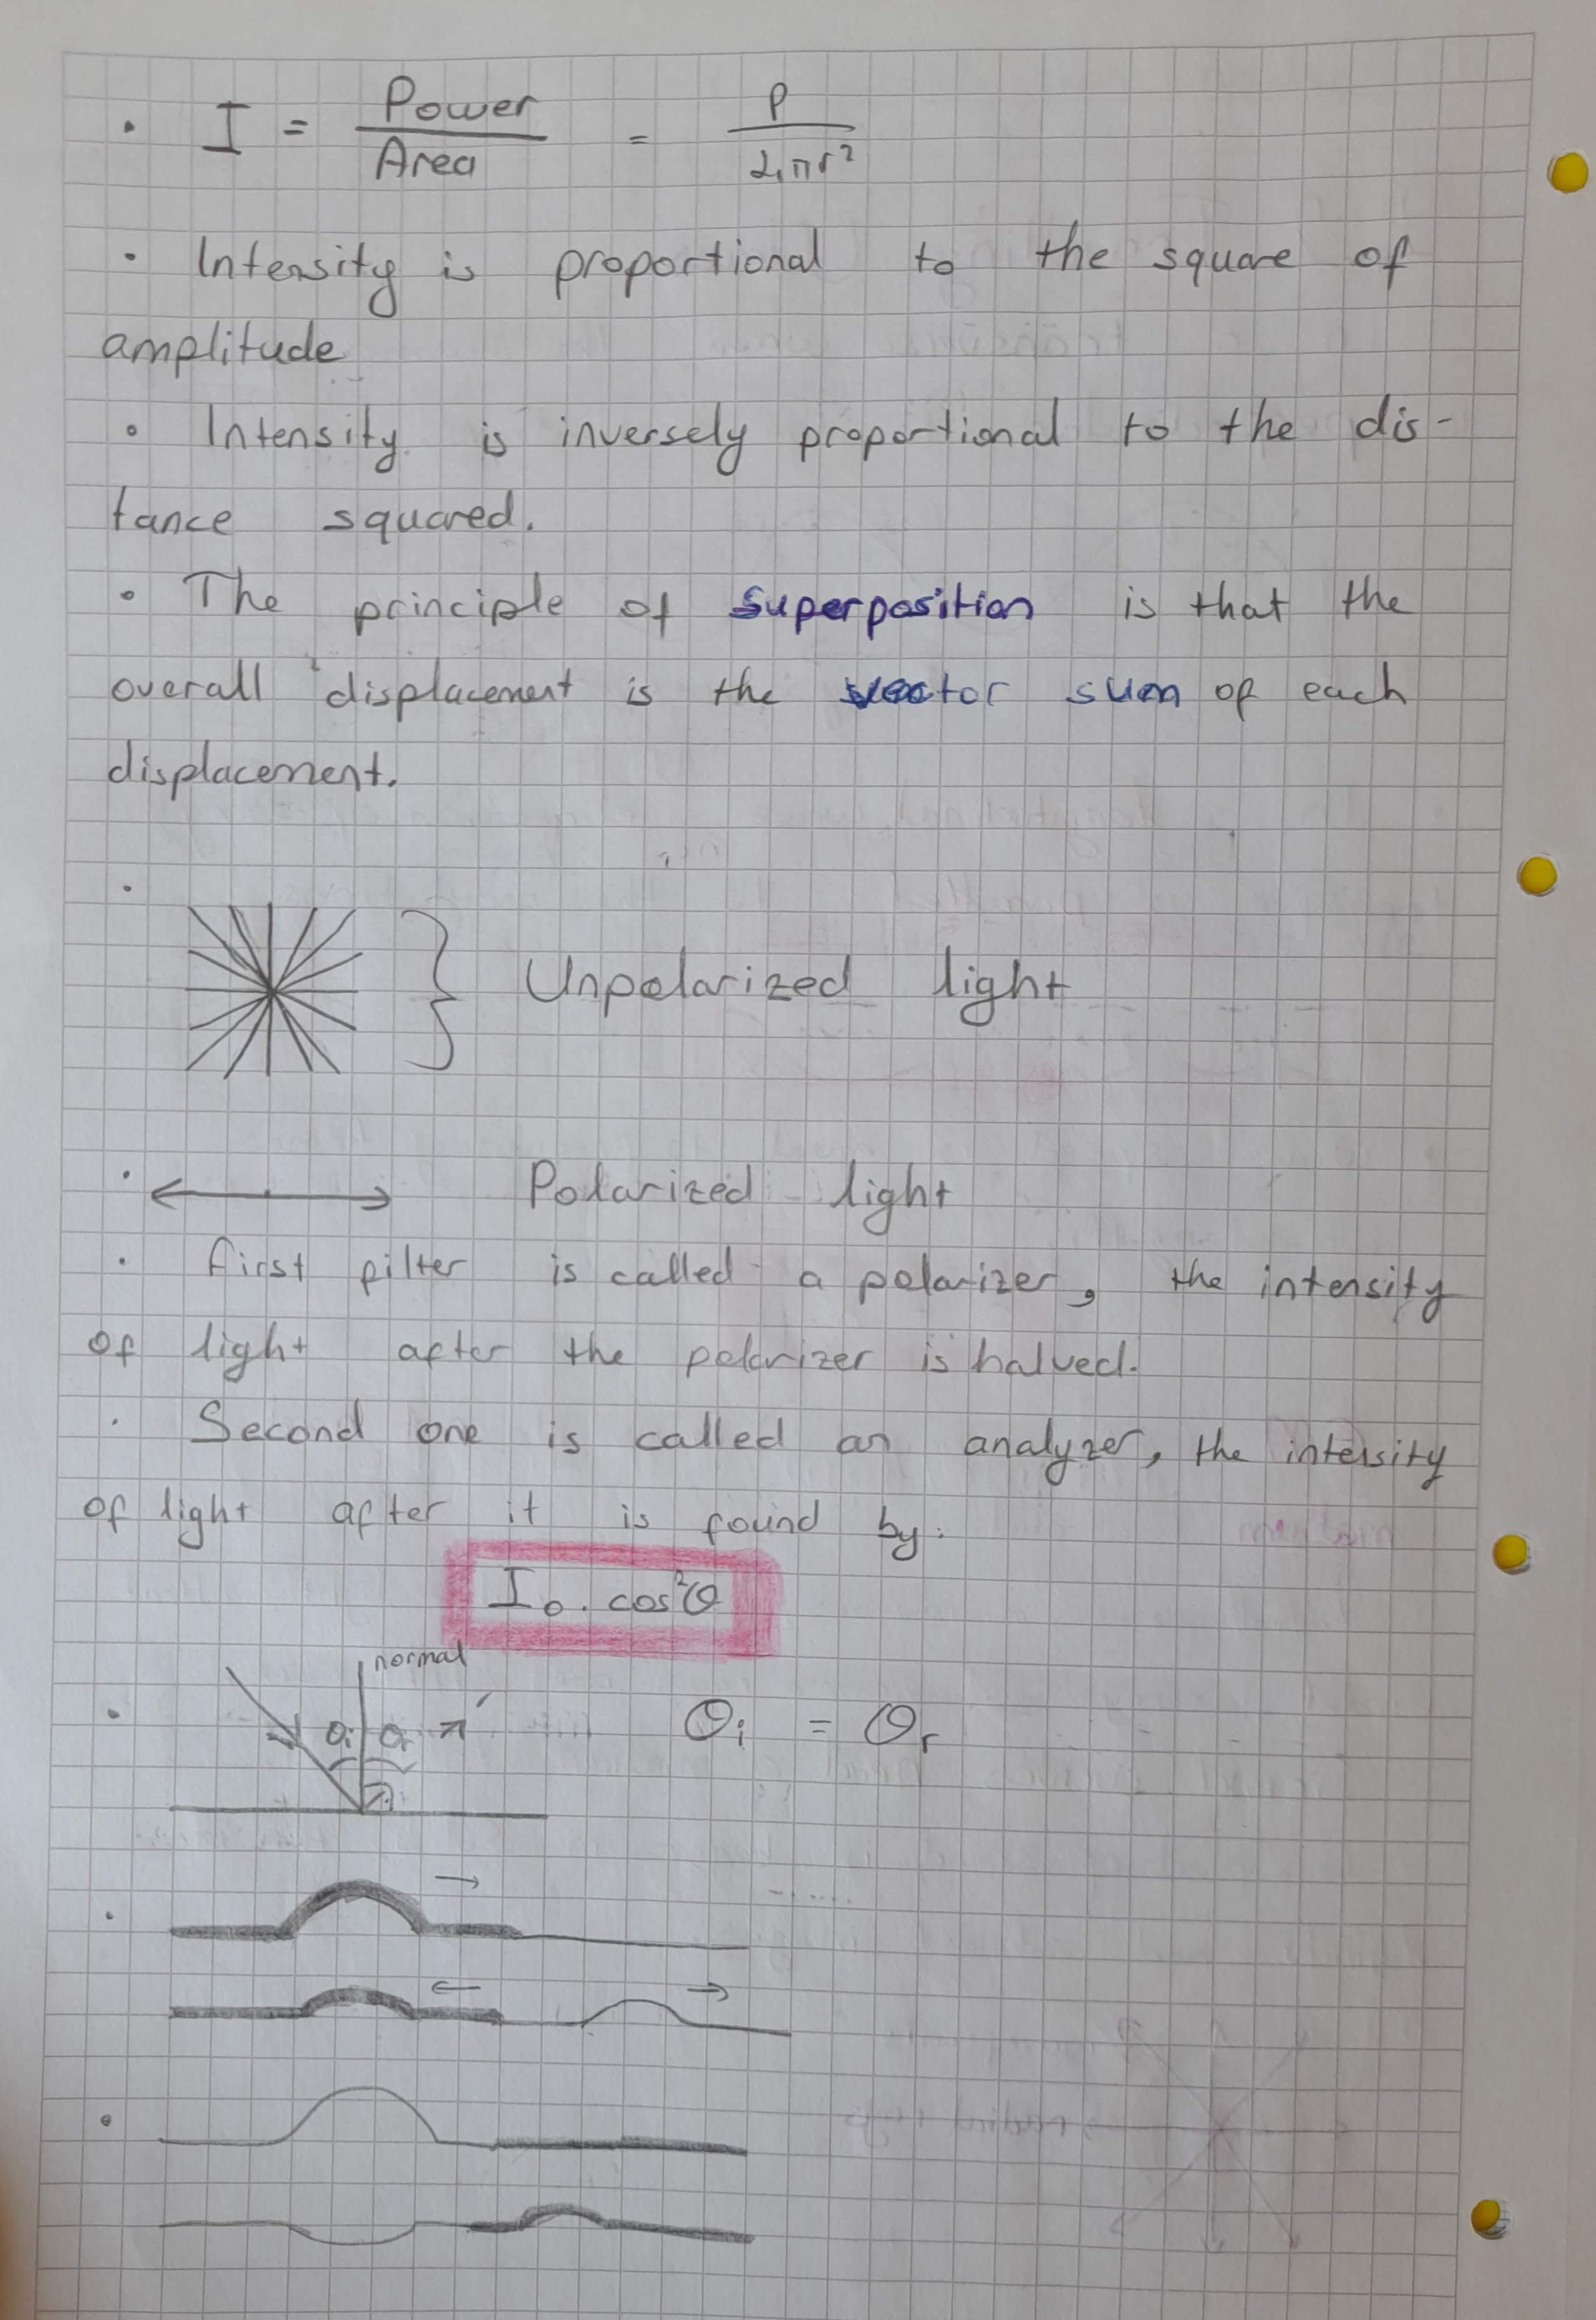 • I = Power / Area = P / 4πr²
• Intensity is proportional to the square of
amplitude
• Intensity is inversely proportional to the dis-
tance squared.
• The principle of superposition is that the
overall displacement is the vector sum of each
displacement.
• Unpolarized light
• Polarized light
• First filter is called a polarizer, the intensity
of light after the polarizer is halved.
• Second one is called an analyzer, the intensity
of light after it is found by:
I₀ . cos²θ
normal
• θi θr θi = θr